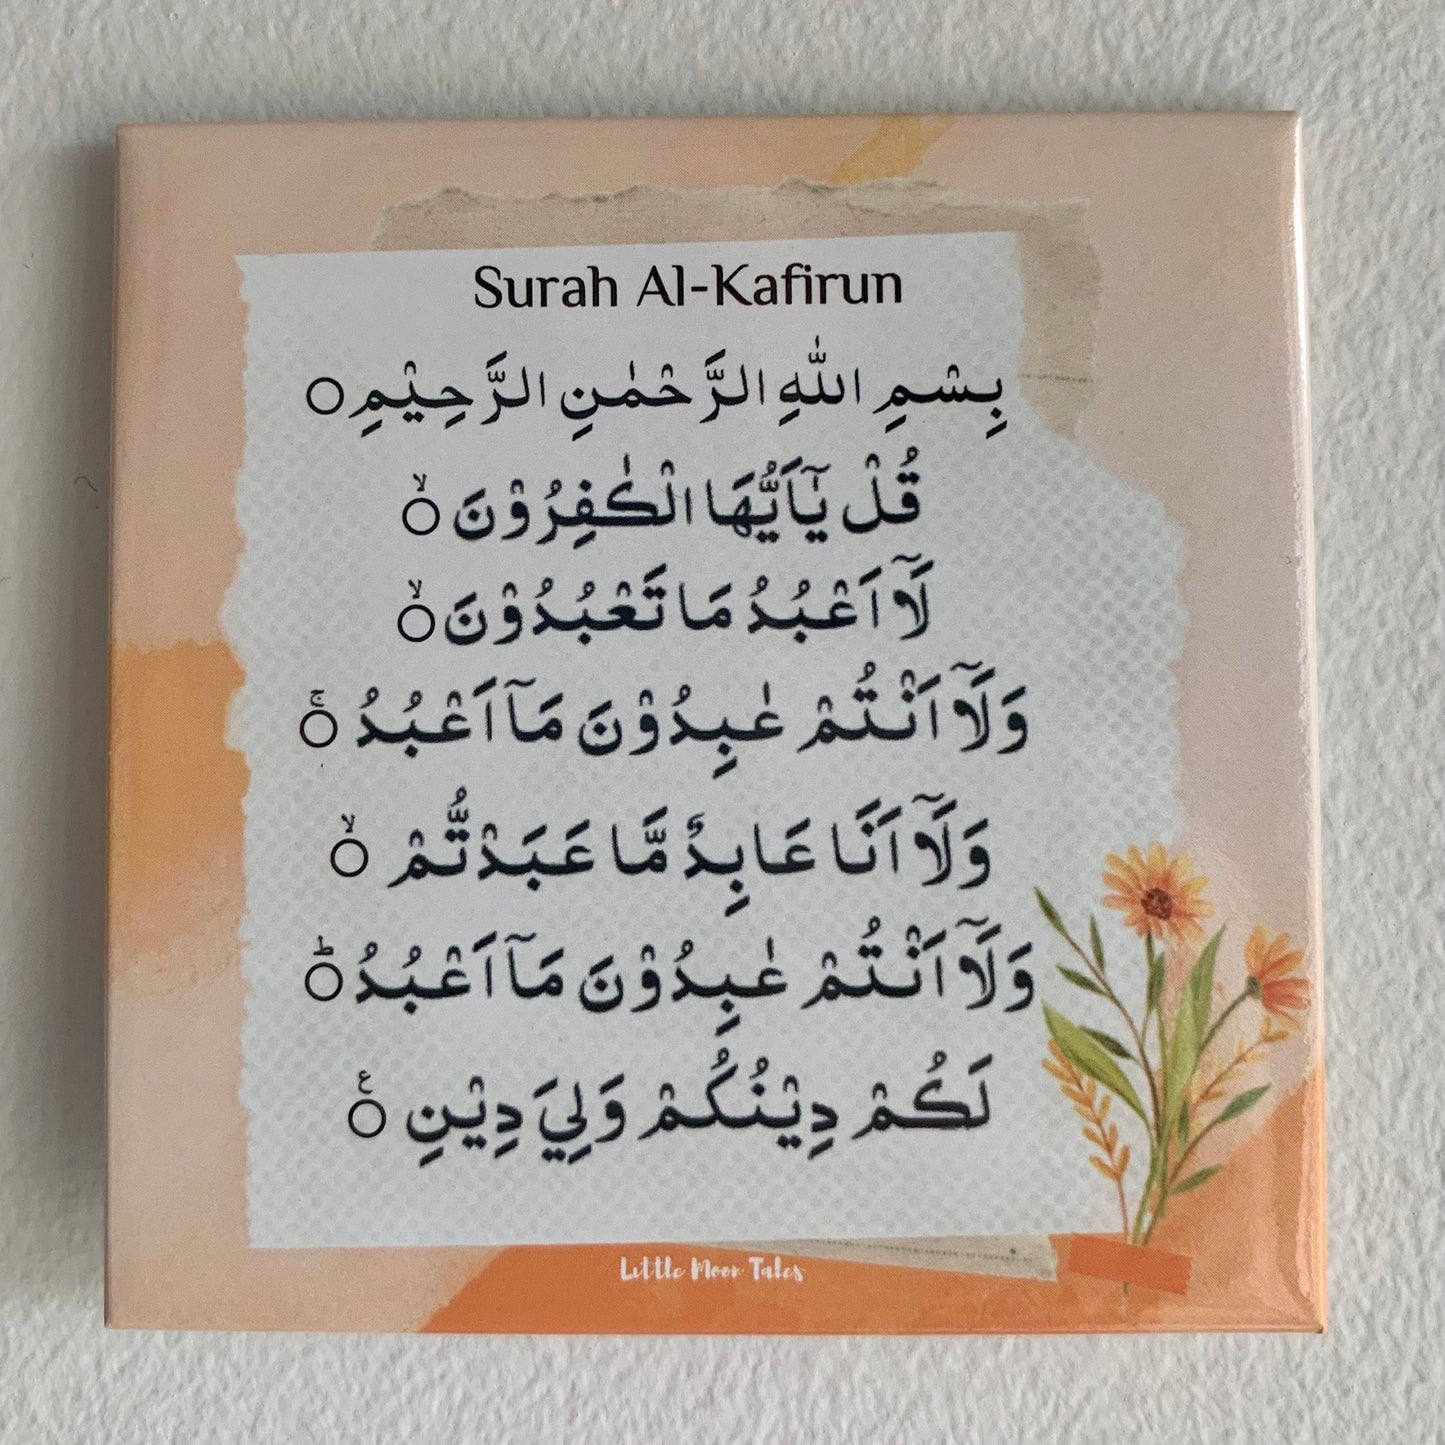 Surah Al-Kafirun
بِسْمِ اللّٰهِ الرَّحْمٰنِ الرَّحِيْمِ ○
قُلْ يٰٓاَيُّهَا الْكٰفِرُوْنَ ○ۙ
لَآ اَعْبُدُ مَا تَعْبُدُوْنَ ○ۙ
وَلَآ اَنْتُمْ عٰبِدُوْنَ مَآ اَعْبُدُ ○ۚ
وَلَآ اَنَا عَابِدٌ مَّا عَبَدْتُّمْ ○ۙ
وَلَآ اَنْتُمْ عٰبِدُوْنَ مَآ اَعْبُدُ ○ؕ
لَكُمْ دِيْنُكُمْ وَلِيَ دِيْنِ ○ࣖ
Little Moon Tales